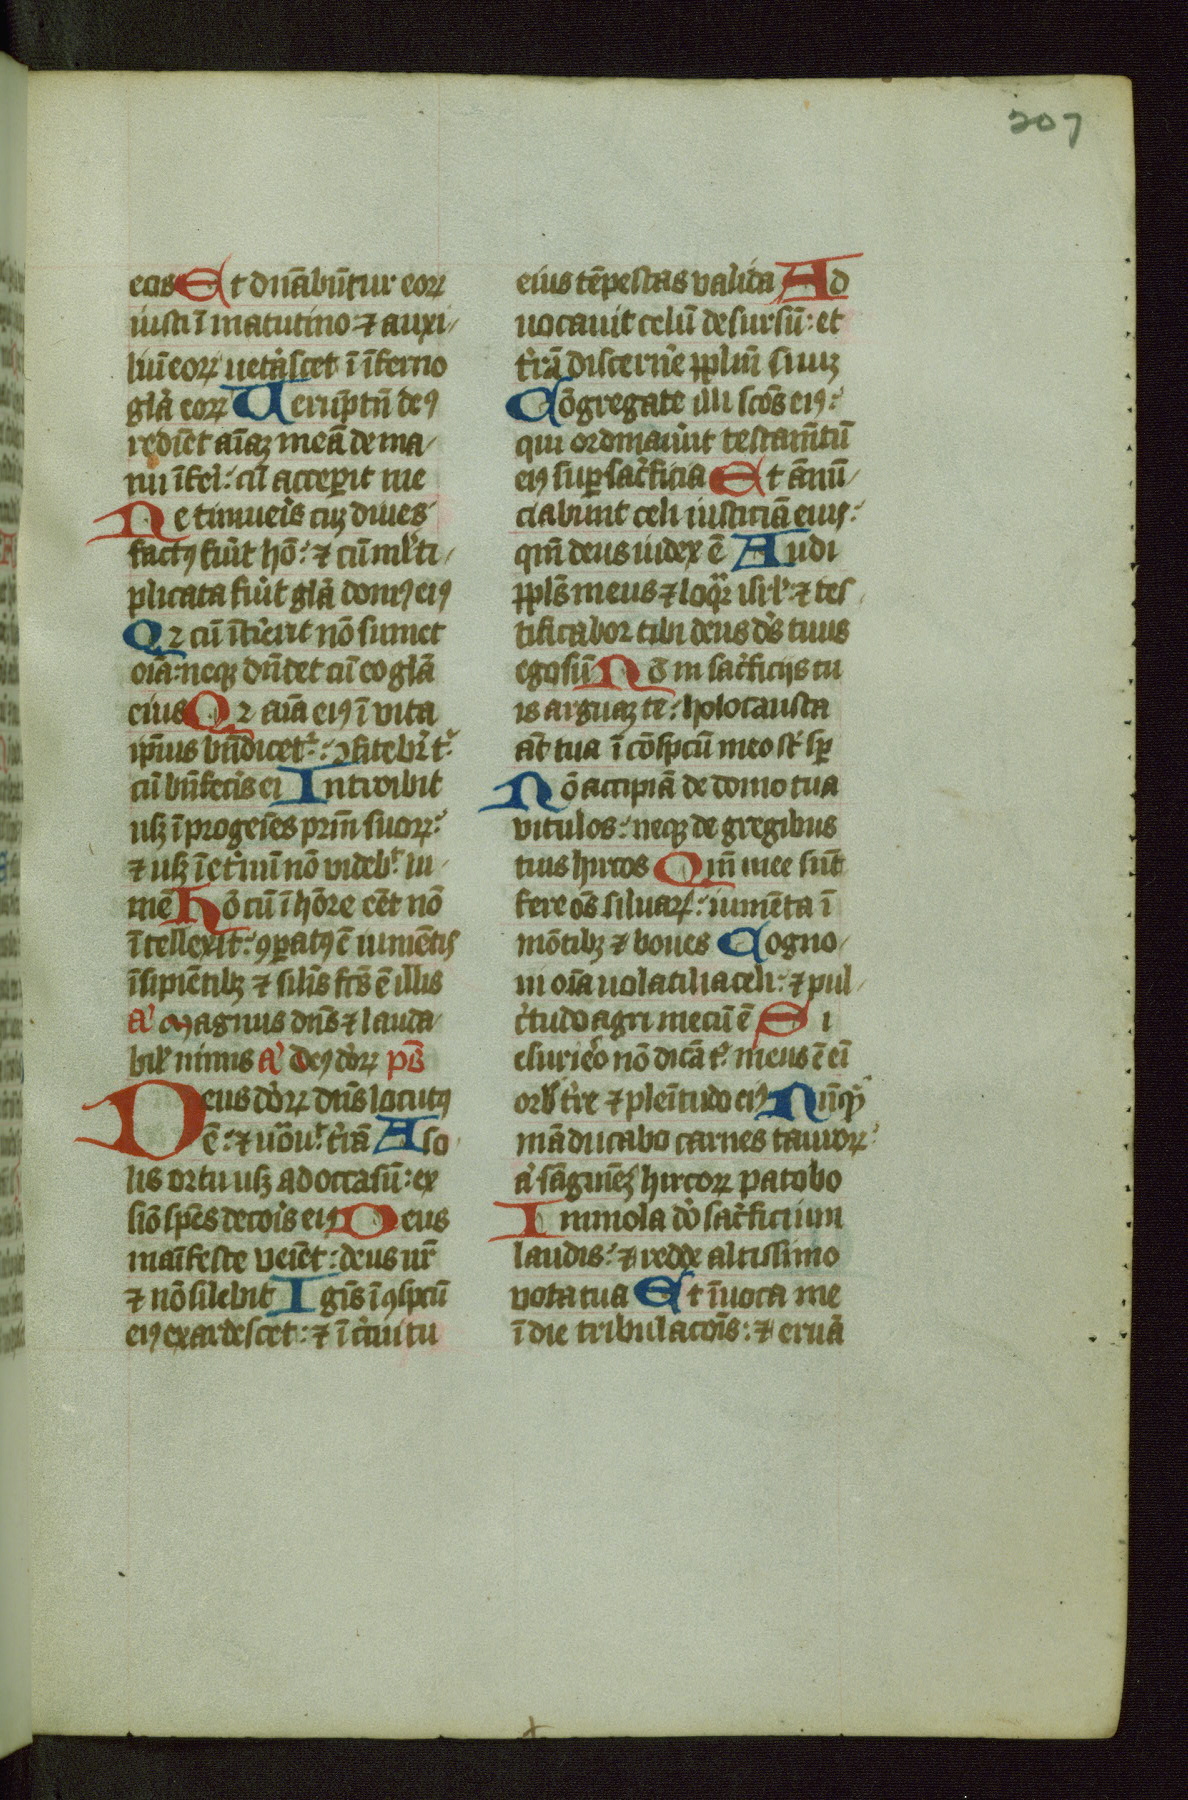 207
eos Et dnābūtur eoꝝ
iusti ī matutino ⁊ auxi
liū eoꝝ uet'ascet ī īferno
glā eoꝝ Uerūptn̄ deꝰ
redīet aīaꝫ meā de ma
nu īfeī: cū acceperit me
Ne timueīs cuꝫ diues
factꝰ fuīt hō: ⁊ cū ml'ti
plicata fuīt glā domꝰ eiꝰ
Qꝛ cū īt'ierit nō sumet
oīa: neqꝫ dn̄det cū eo glā
eius Qꝛ aīa eiꝰ ī vita
ipīus bn̄dicet': ꝯfitebr̄ t'
cū bn̄fecīs ei Introibit
usꝫ ī progēies prīm suoꝝ:
⁊ usꝫ ī et'nū nō videb' lu
mē Hō cū ī hōre eēt nō
ītellexit: ꝯparatꝰ ē iumētis
īsipiētibꝫ ⁊ silīs fcs̄ ē illis
a' Magnus dn̄s ⁊ lauda
bil' nimis a' Deꝰ dōꝝ ps̄
Deus dōꝝ dn̄s locutꝰ
ē: ⁊ uōu' t'rā A so
lis ortu usꝫ ad occasū: ex
siō spēs decoīs eiꝰ Deus
maīfeste veīet: deus nr̄
⁊ nō silebit Igīs ī ꝯspcū
eiꝰ exardescet: ⁊ ī c'cuitu
eius tēpestas valida Ad
uocauit celū desursū: et
t'rā discern'e pplūm suuꝫ
Cōgregate illi scōs eiꝰ:
qui ordinauīt testam̄tū
eiꝰ super sac'ficia Et ānū
ciabunt celi iusticiā eius:
qm̄ deus iudex ē Audi
ppls̄ meus ⁊ loqr̄ isrl': ⁊ tes
tificabor tibi deus ds̄ tuus
ego sū Nō in sac'ficijs tu
is arguaꝫ te: holocausta
āt tua ī cōspcū meo st' sp
Nō accipiā de domo tua
vitulos: neqꝫ de gregibus
tuis hircos Qm̄ mee sūt
fere oēs siluaꝝ: iumēta ī
mōtibꝫ ⁊ boues Cogno
ui oīa uolatilia celi: ⁊ pul
c'tudo agri mecū ē Si
esuriēo nō dicā t' meus ē eī
orb' t're ⁊ plēitudo eiꝰ Nūqd'
māducabo carnes tauroꝝ:
a' sāguīeꝫ hircoꝝ patobo
Immola dō sac'ficium
laudis: ⁊ redde altissimo
vota tua Et īuoca me
ī die tribulacōis: ⁊ eruā